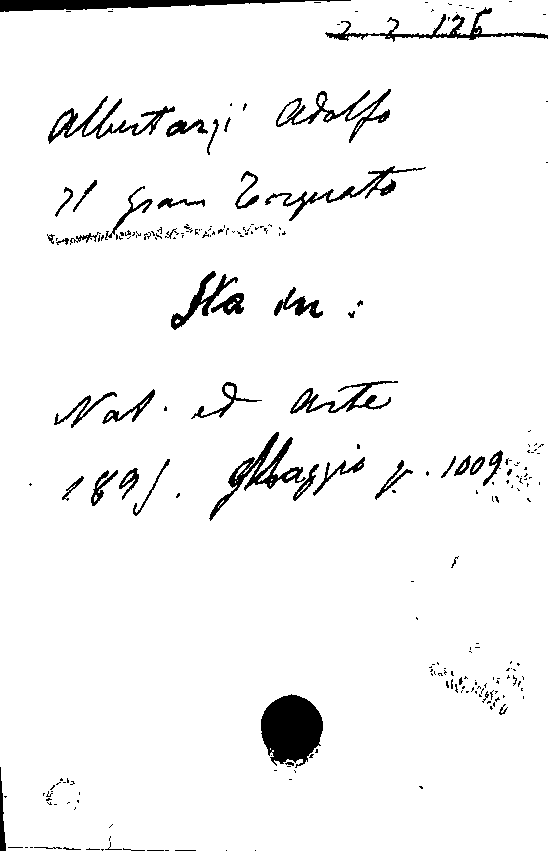 2 2 126
Albertazzi Adolfo
Il gran Torquato
Sta in :
Nat. ed Arte
1895. Maggio p. 1009.